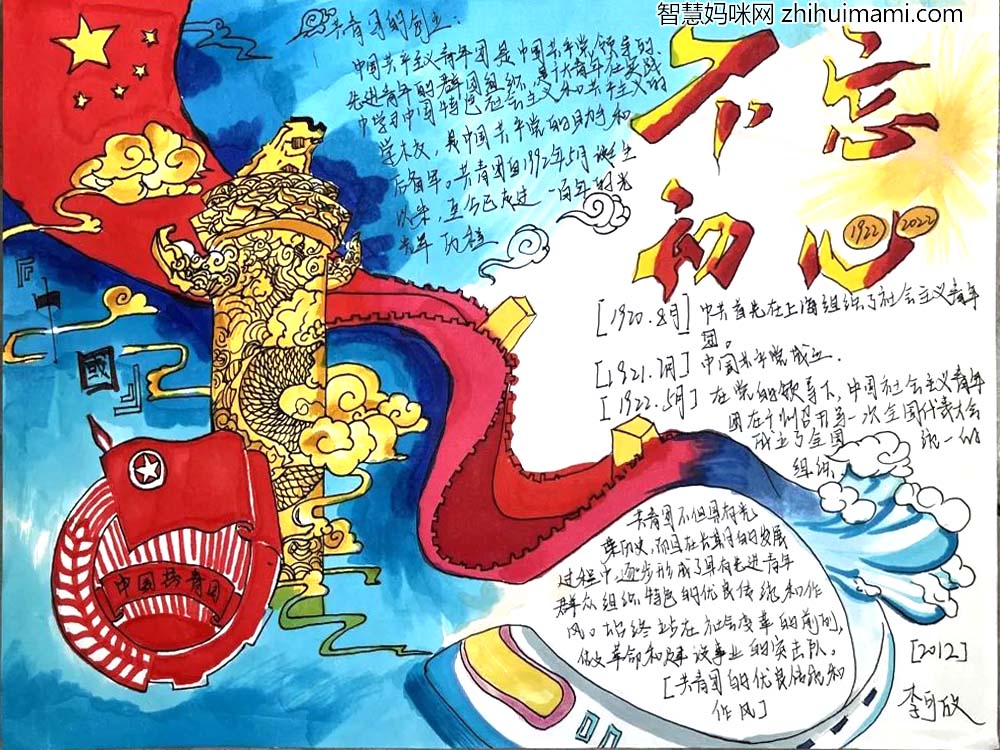 智慧妈咪网 zhihuimami.com
共青团的创立:
中国共产主义青年团是中国共产党领导的
先进青年的群团组织,是广大青年在实践
中学习中国特色社会主义和共产主义的
学校,是中国共产党的助手和
后备军。共青团自1992年5月诞生
以来,至今已走过一百年的光
历程
不忘
初心
1922 2022
[1920.8月] 中共首先在上海组织了社会主义青年
团。
[1921.7月] 中国共产党成立.
[1922.5月] 在党的领导下,中国社会主义青年
团在广州召开第一次全国代表大会
成立了全国 统一的
组织
國
中国共青团
共青团不但具有光
荣历史,而且在长期的发展
过程中逐步形成了具有先进青年
群众组织特色的优良传统和作
风。始终站在社会变革的前列,
做革命和建设事业的突击队。
[共青团的优良传统和
作风]
[2012]